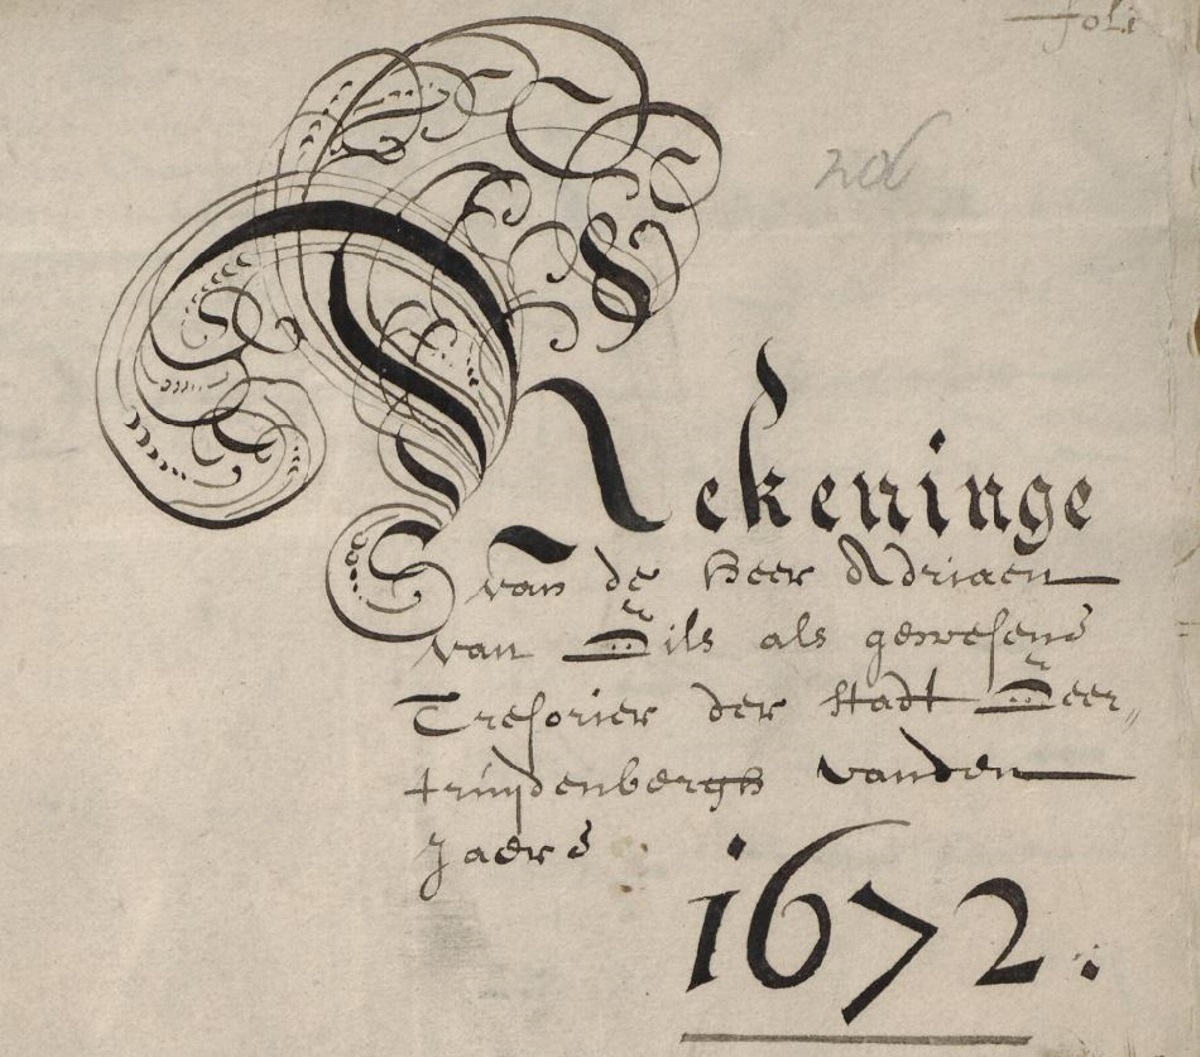 foli
Rekeninge
van de Heer Adriaen
van Gils als gewesene
Tresorier der stadt Geer„
truijdenbergh vanden
Jaere
1672.